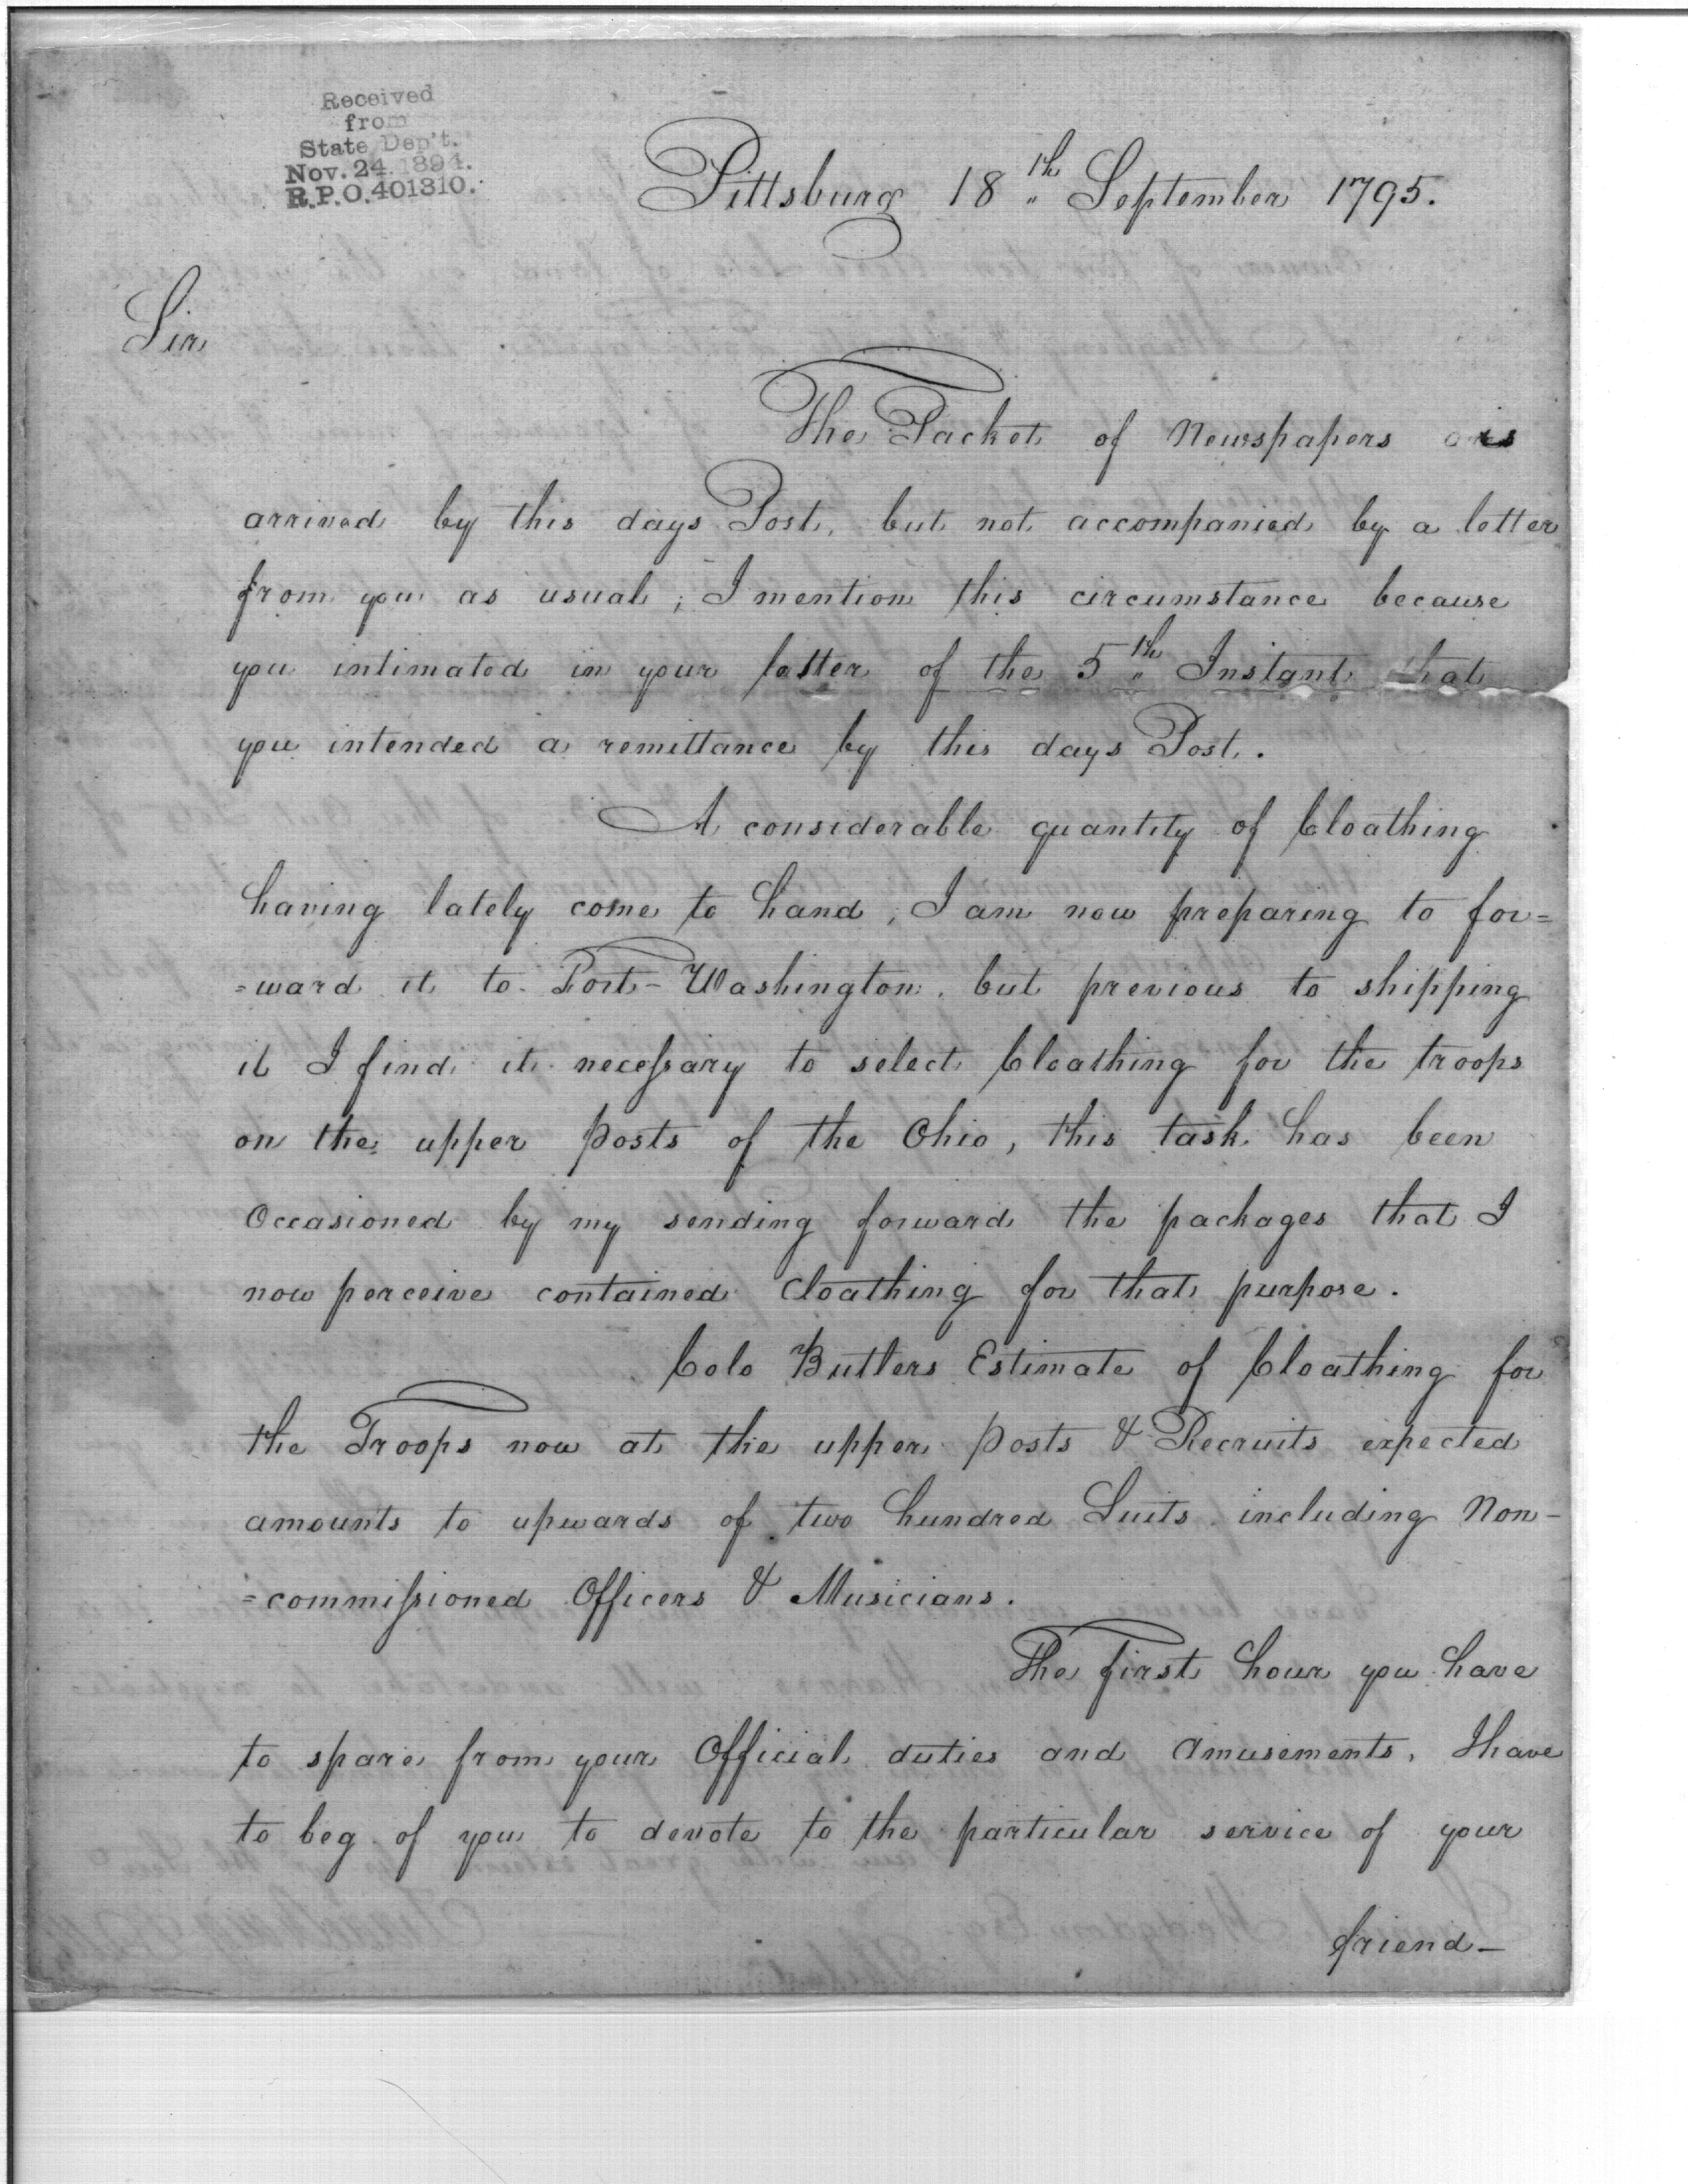 Received
from
State Dep't.
Nov. 24 1894.
R.P.O. 401310.
Pittsburg 18th September 1795.
Sir
The Packet of Newspapers is
arrived by this days Post, but not accompanied by a letter
from you as usual; I mention this circumstance because
you intimated in your letter of the 5th Instant that
you intended a remittance by this days Post.
A considerable quantity of Cloathing
having lately come to hand, I am now preparing to for=
=ward it to Fort-Washington. but previous to shipping
it I find it necessary to select Cloathing for the troops
on the upper posts of the Ohio, this task has been
Occasioned by my sending forward the packages that I
now perceive contained Cloathing for that purpose.
Colo Butlers Estimate of Cloathing for
the Troops now at the upper posts & Recruits expected
amounts to upwards of two hundred Suits including Non-
=commissioned Officers & Musicians.
The first hour you have
to spare from your Official duties and Amusements, I have
to beg of you to devote to the particular service of your
friend-